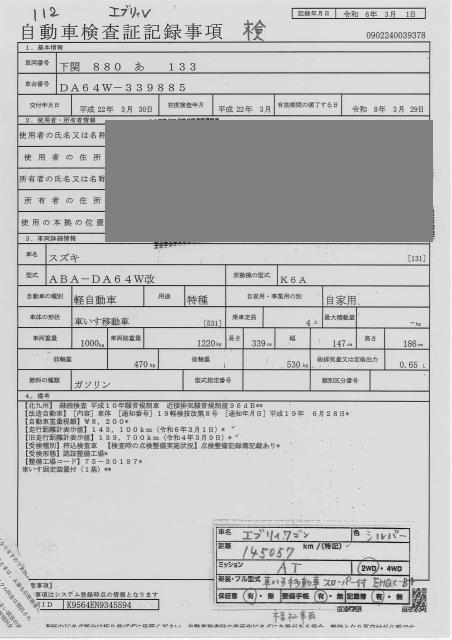 112 エブリィV
記録年月日 令和 6年 3月 1日
自動車検査証記録事項 検
0902240039378
1. 基本情報
車両番号 下関 880 あ 133
車台番号 DA64W-339885
交付年月日 平成 22年 3月 30日 初度検査年月 平成 22年 3月 有効期間の満了する日 令和 8年 3月 29日
2. 使用者・所有者情報
使用者の氏名又は名称
使用者の住所
所有者の氏名又は名称
所有者の住所
使用の本拠の位置
3. 車両詳細情報
車名 スズキ [131]
型式 ABA-DA64W改 原動機の型式 K6A
自動車の種別 軽自動車 用途 特種 自家用・事業用の別 自家用
車体の形状 車いす移動車 [531] 乗車定員 4人 最大積載量 -kg
車両重量 1000kg 車両総重量 1220kg 長さ 339cm 幅 147cm 高さ 186cm
前軸重 470kg 後軸重 530kg 総排気量又は定格出力 0.65 L
燃料の種類 ガソリン 型式指定番号 類別区分番号
4. 備考
【北九州】 継続検査 平成10年騒音規制車 近接排気騒音規制値96dB**
【改造自動車】【内容】車体 【通知番号】19軽検技放第8号 【通知年月日】平成19年 6月28日*
【自動車重量税額】¥8,200*
【走行距離計表示値】143,100km(令和6年3月1日)*
【旧走行距離計表示値】139,700km(令和4年3月9日)*
【受検種別】持込検査車 【検査時の点検整備実施状況】点検整備記録簿記載あり*
【受検形態】認証整備工場*
【整備工場コード】75-30197*
車いす固定装置付(1基)**
車名 エブリィワゴン 色 シルバー
距離 145057 km/(特記)
ミッション AT 2WD・4WD
架装・フル型式 車いす移動車 スローパー付
保証書 有・無 整備手帳 有・無 記録簿 有・無
福祉車両
事項はシステム登録時点の情報となります
ID K9564EN9345594